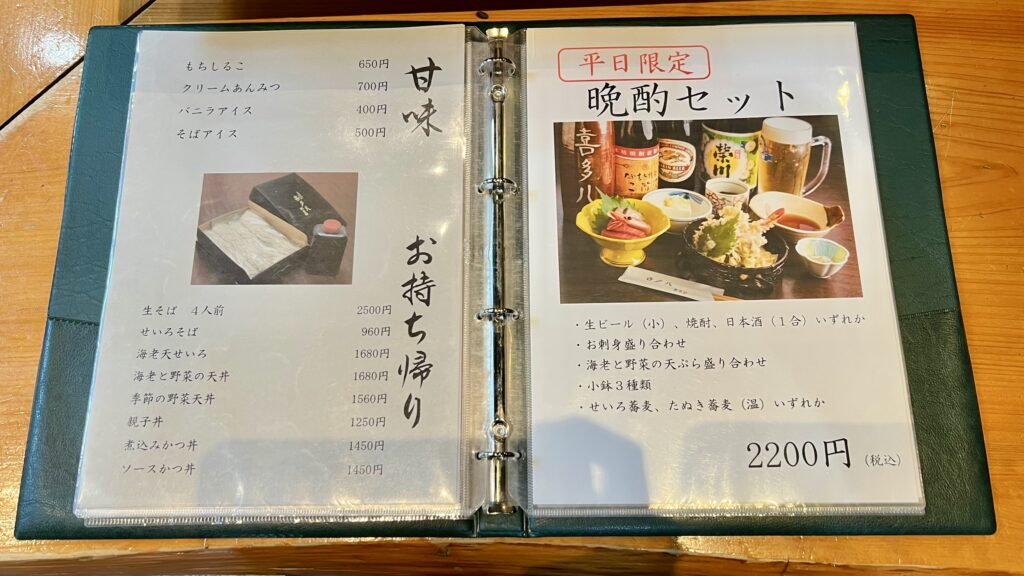 甘味
もちしるこ 650円
クリームあんみつ 700円
バニラアイス 400円
そばアイス 500円
お持ち帰り
生そば 4人前 2500円
せいろそば 960円
海老天せいろ 1680円
海老と野菜の天丼 1680円
季節の野菜天丼 1560円
親子丼 1250円
煮込みかつ丼 1450円
ソースかつ丼 1450円
平日限定
晩酌セット
喜多川
榮川
・生ビール（小）、焼酎、日本酒（1合）いずれか
・お刺身盛り合わせ
・海老と野菜の天ぷら盛り合わせ
・小鉢3種類
・せいろ蕎麦、たぬき蕎麦（温）いずれか
2200円（税込）